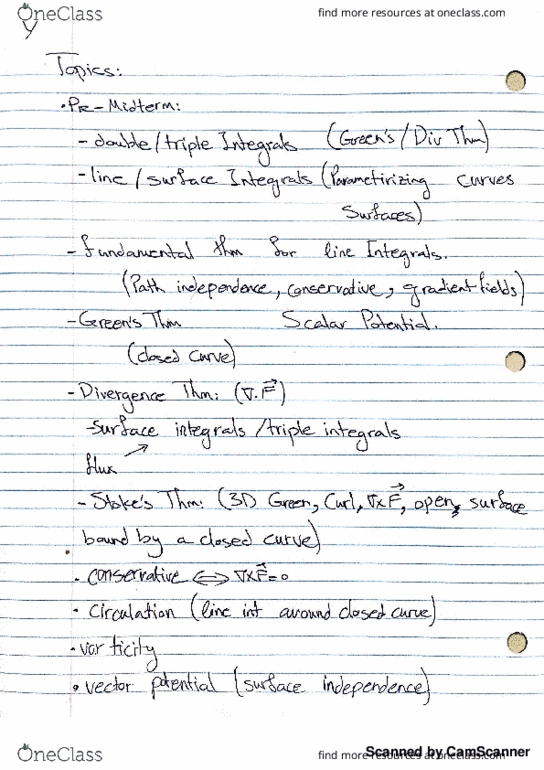 OneClass
find more resources at oneclass.com
Topics:
• Pre-Midterm:
- double/triple Integrals (Green's/Div Thm)
- line/surface Integrals (Parametirizing curves
Surfaces)
- fundamental thm for line Integrals.
(Path independence, conservative, gradient fields)
- Green's Thm Scalar Potential.
(closed curve)
- Divergence Thm: (∇.F⃗)
- Surface integrals/triple integrals
flux ↗
- Stoke's Thm: (3D Green, Curl, ∇xF⃗, open, surface
bound by a closed curve)
• conservative ⇔ ∇xF⃗=0
• Circulation (line int around closed curve)
• vorticity
• vector potential (surface independence)
OneClass
find more resources at oneclass.com
Scanned by CamScanner